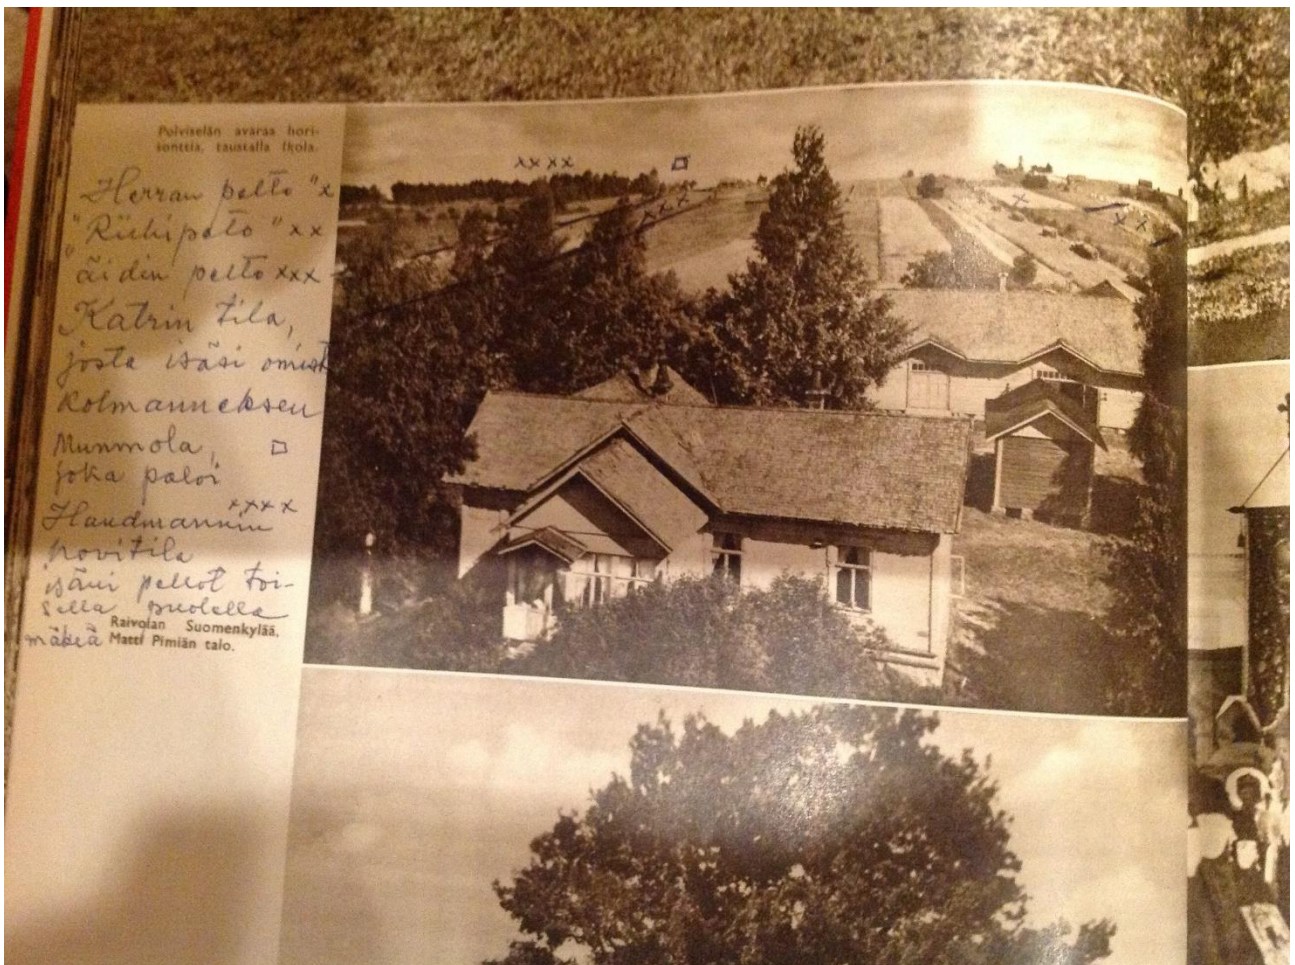 Polviselän avaraa hori-
sonttia, taustalla Ikola.
Herran pelto "x
"Riihipelto" xx
"äidin pelto xxx
Katrin tila,
josta isäsi omist
kolmanneksen
Mummola,
joka paloi
xxxx
Handmannin
hovitila
isäni pellot toi-
sella puolella
mäkeä
Raivolan Suomenkylää,
Matti Pimiän talo.
xxxx
xxx
x
xx